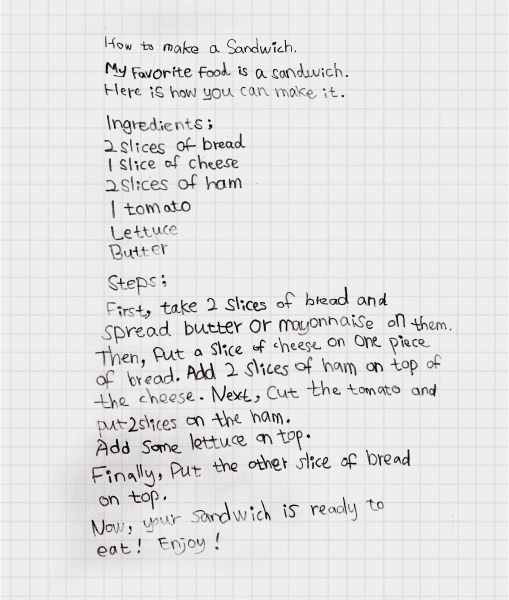 How to make a Sandwich.
My Favorite Food is a sandwich.
Here is how you can make it.
Ingredients;
2 slices of bread
1 slice of cheese
2 slices of ham
1 tomato
Lettuce
Butter
Steps;
First, take 2 slices of bread and
spread butter or mayonnaise on them.
Then, Put a slice of cheese on one piece
of bread. Add 2 slices of ham on top of
the cheese. Next, Cut the tomato and
put 2 slices on the ham.
Add Some lettuce on top.
Finally, Put the other slice of bread
on top.
Now, your sandwich is ready to
eat! Enjoy!